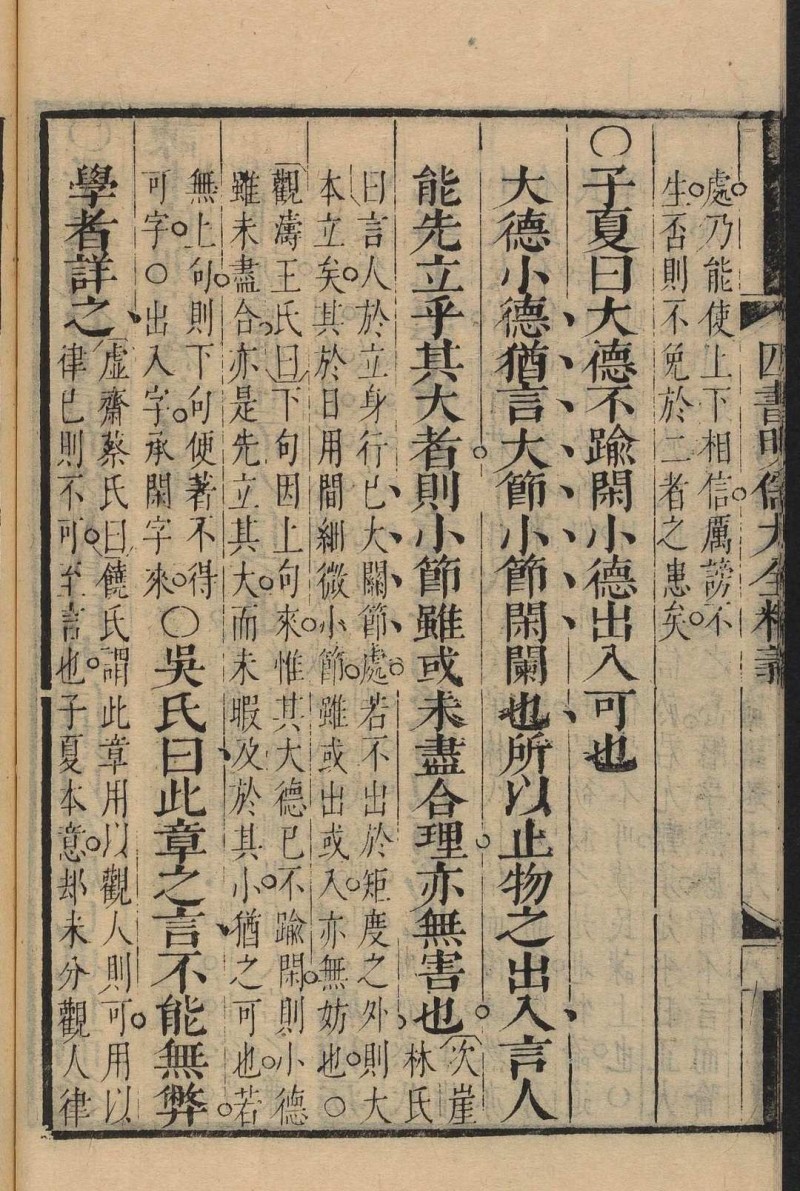 四書明儒大全精義
處乃能使上下相信厲謗不
生否則不免於二者之患矣
○子夏曰大德不踰閑小德出入可也
大德小德猶言大節小節閑闌也所以止物之出入言人
能先立乎其大者則小節雖或未盡合理亦無害也
次崖
林氏
曰言人於立身行己大關節處若不出於矩度之外則大
本立矣其於日用間細微小節雖或出或入亦無妨也○
觀濤王氏曰下句因上句來惟其大德已不踰閑則小德
雖未盡合亦是先立其大而未暇及於其小猶之可也若
無上句則下句便著不得
可字○出入字承閑字來
○吳氏曰此章之言不能無弊
學者詳之
虛齋蔡氏曰饒氏謂此章用以觀人則可用以
律己則不可至言也子夏本意却未分觀人律